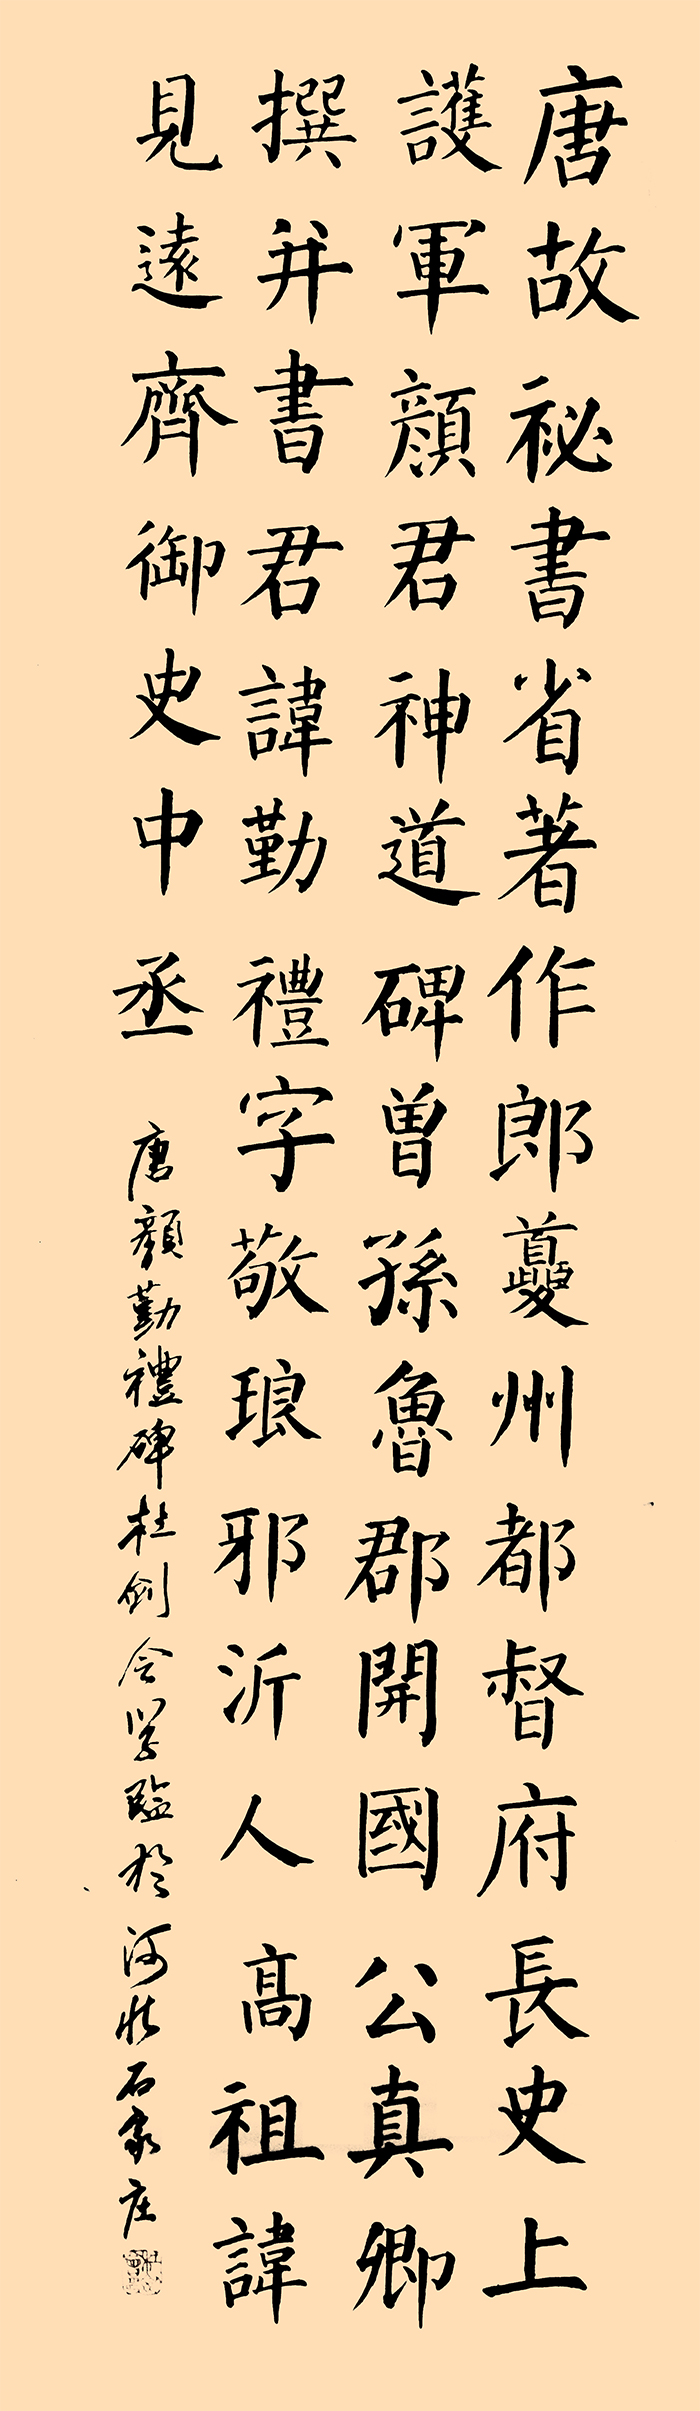 唐故祕書省著作郎夔州都督府長史上
護軍顏君神道碑曾孫魯郡開國公真卿
撰并書君諱勤禮字敬琅邪沂人高祖諱
見遠齊御史中丞
唐顏勤禮碑杜剑令学臨於河北石家庄